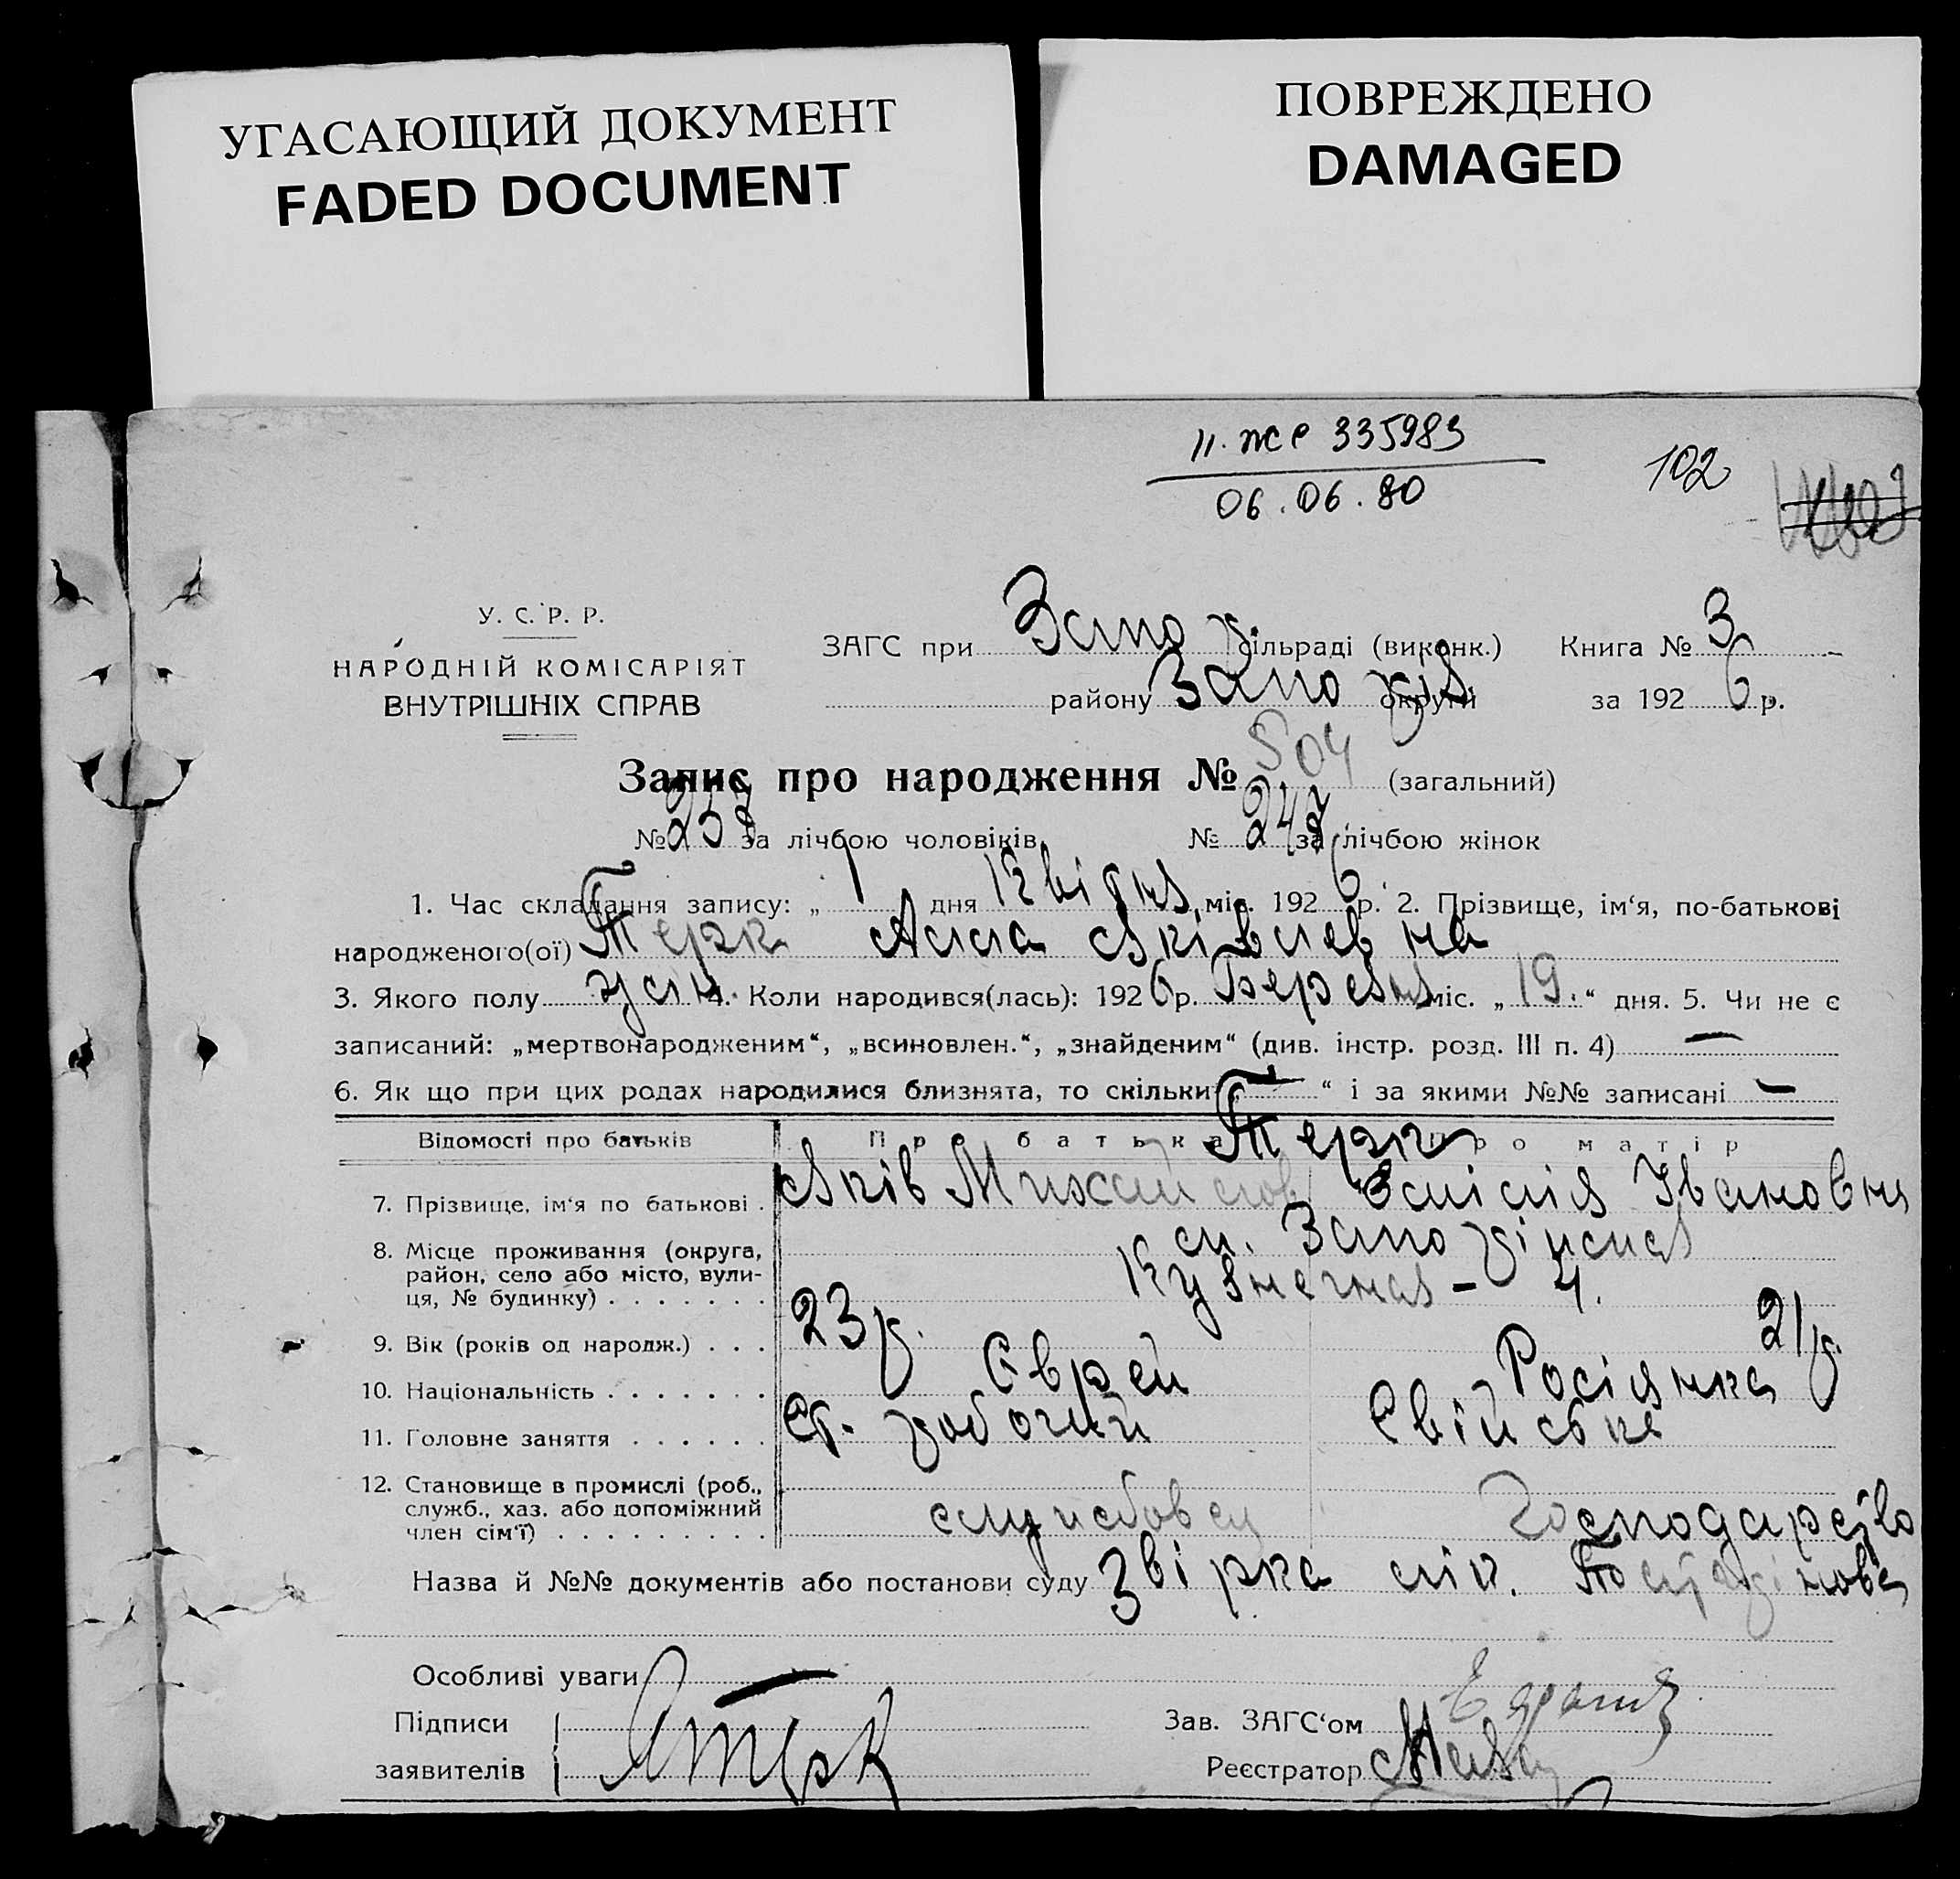 УГАСАЮЩИЙ ДОКУМЕНТ
FADED DOCUMENT
ПОВРЕЖДЕНО
DAMAGED
335983
06.06.80
102
У. С. Р. Р.
НАРОДНІЙ КОМІСАРІЯТ
ВНУТРІШНІХ СПРАВ
ЗАГС при Запор сільраді (виконк.) Книга № 3
району Запоріз округи за 1926 р.
Запис про народження № 504 (загальний)
№ 257 за лічбою чоловіків № 247 за лічбою жінок
1. Час складання запису: „ 1 дня Квітня міс. 1926 р. 2. Прізвище, ім'я, по-батькові
народженого(ої) Терк Алла Яківлевна
3. Якого полу жін. 4. Коли народився(лась): 1926 р. Березня міс. „19.“ дня. 5. Чи не є
записаний: „мертвонародженим“, „всиновлен.“, „знайденим“ (див. інстр. розд. III п. 4) —
6. Як що при цих родах народилися близнята, то скільки „—“ і за якими №№ записані —
Відомості про батьків Про батька Про матір
Терк
7. Прізвище, ім'я по батькові . Яків Михайлов Емілія Івановна
8. Місце проживання (округа,
район, село або місто, вули-
ця, № будинку) . . . . . . .
Кузнечная - 4.
9. Вік (років од народж.) . . . 23 р. 21 р.
10. Національність . . . . . . . Єврей Росіянка
11. Головне заняття . . . . . . Ст. робочий Свійське
12. Становище в промислі (роб.,
служб., хаз. або допоміжний
член сім'ї) . . . . . . . . . службовец господарство
Назва й №№ документів або постанови суду Звірка лік.
Особливі уваги —
Підписи
заявителів ЯТерк
Зав. ЗАГС'ом
Реєстратор